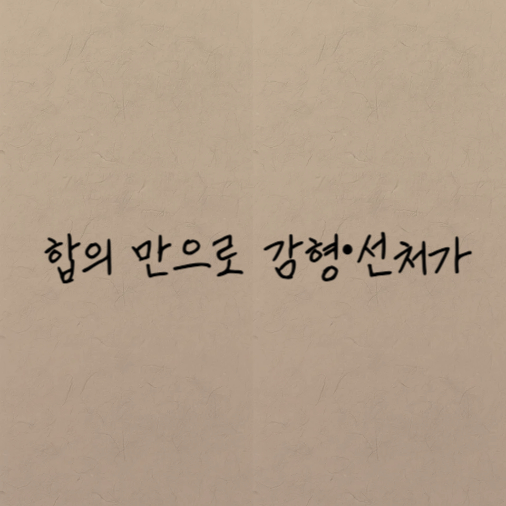 합의 만으로 감형•선처가